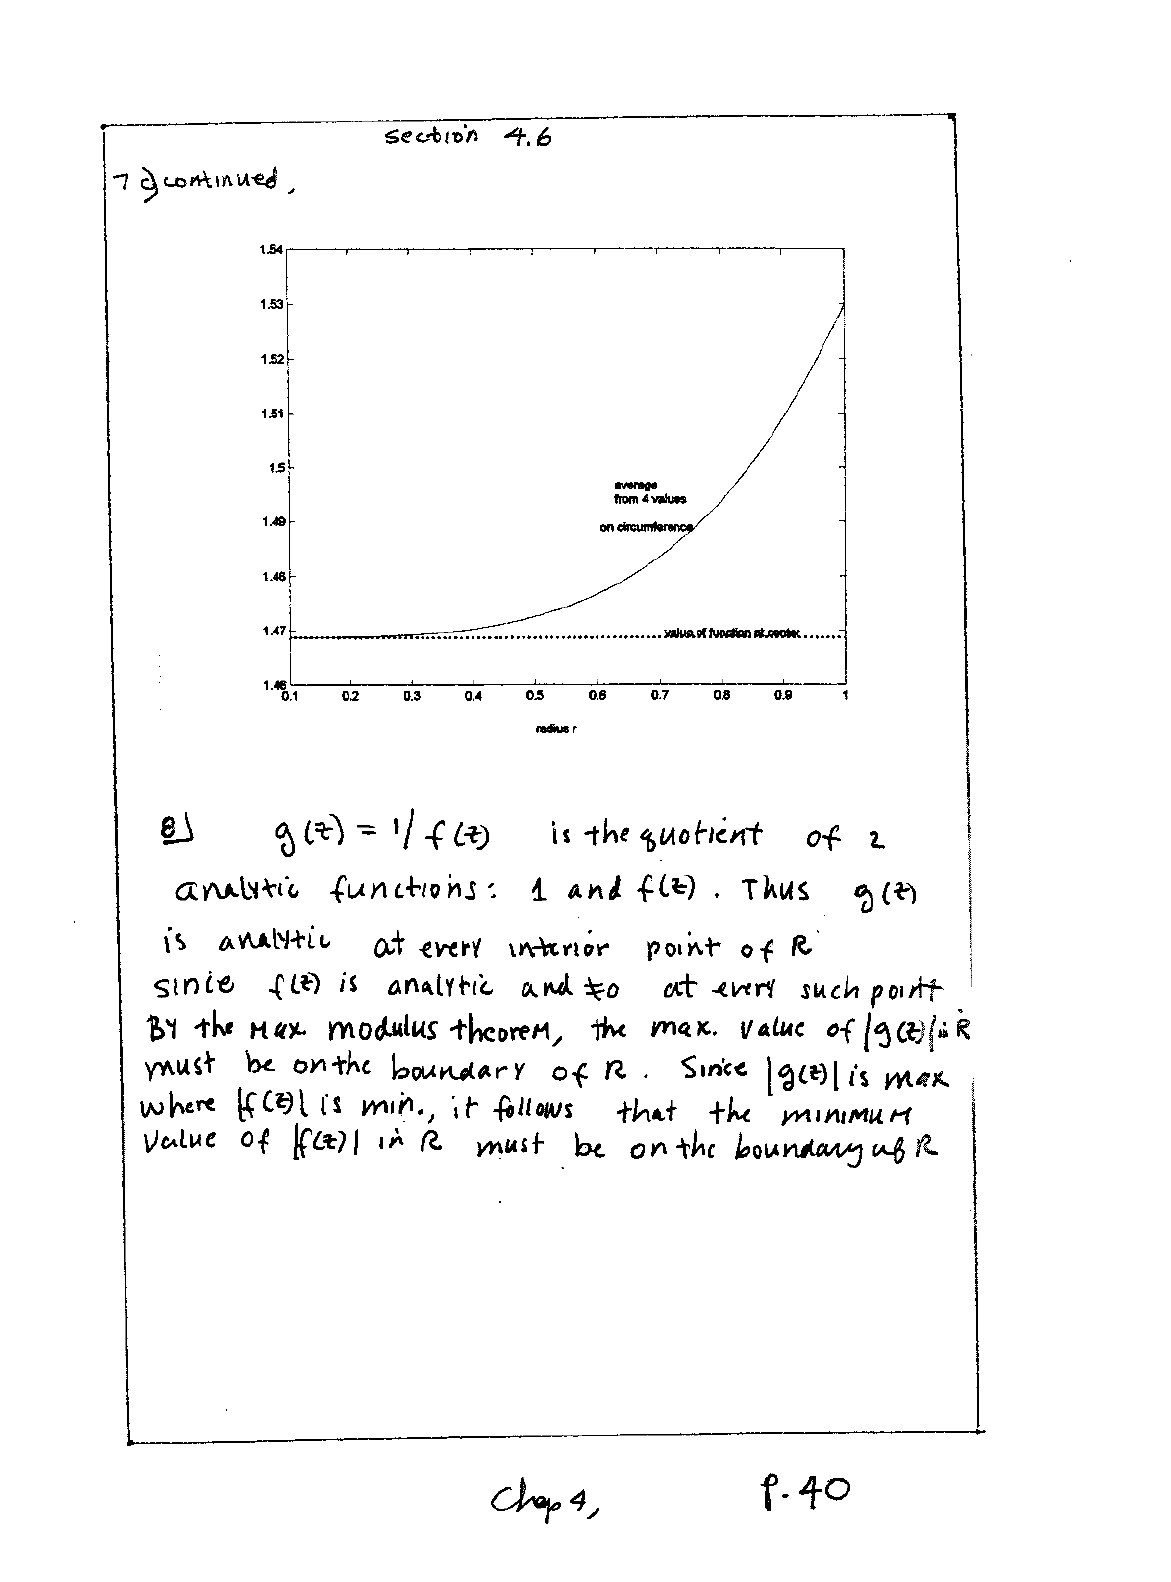 Section 4.6
7 c) continued,
1.54
1.53
1.52
1.51
1.5
1.49
1.48
1.47
1.46
average
from 4 values
on circumference
value of function at center
0.1 0.2 0.3 0.4 0.5 0.6 0.7 0.8 0.9 1
radius r
8] g(z) = 1/f(z) is the quotient of 2
analytic functions: 1 and f(z). Thus g(z)
is analytic at every interior point of R
since f(z) is analytic and ≠0 at every such point
By the Max modulus theorem, the max. value of |g(z)| in R
must be on the boundary of R. Since |g(z)| is max
where |f(z)| is min., it follows that the minimum
value of |f(z)| in R must be on the boundary of R
Chap 4, p. 40